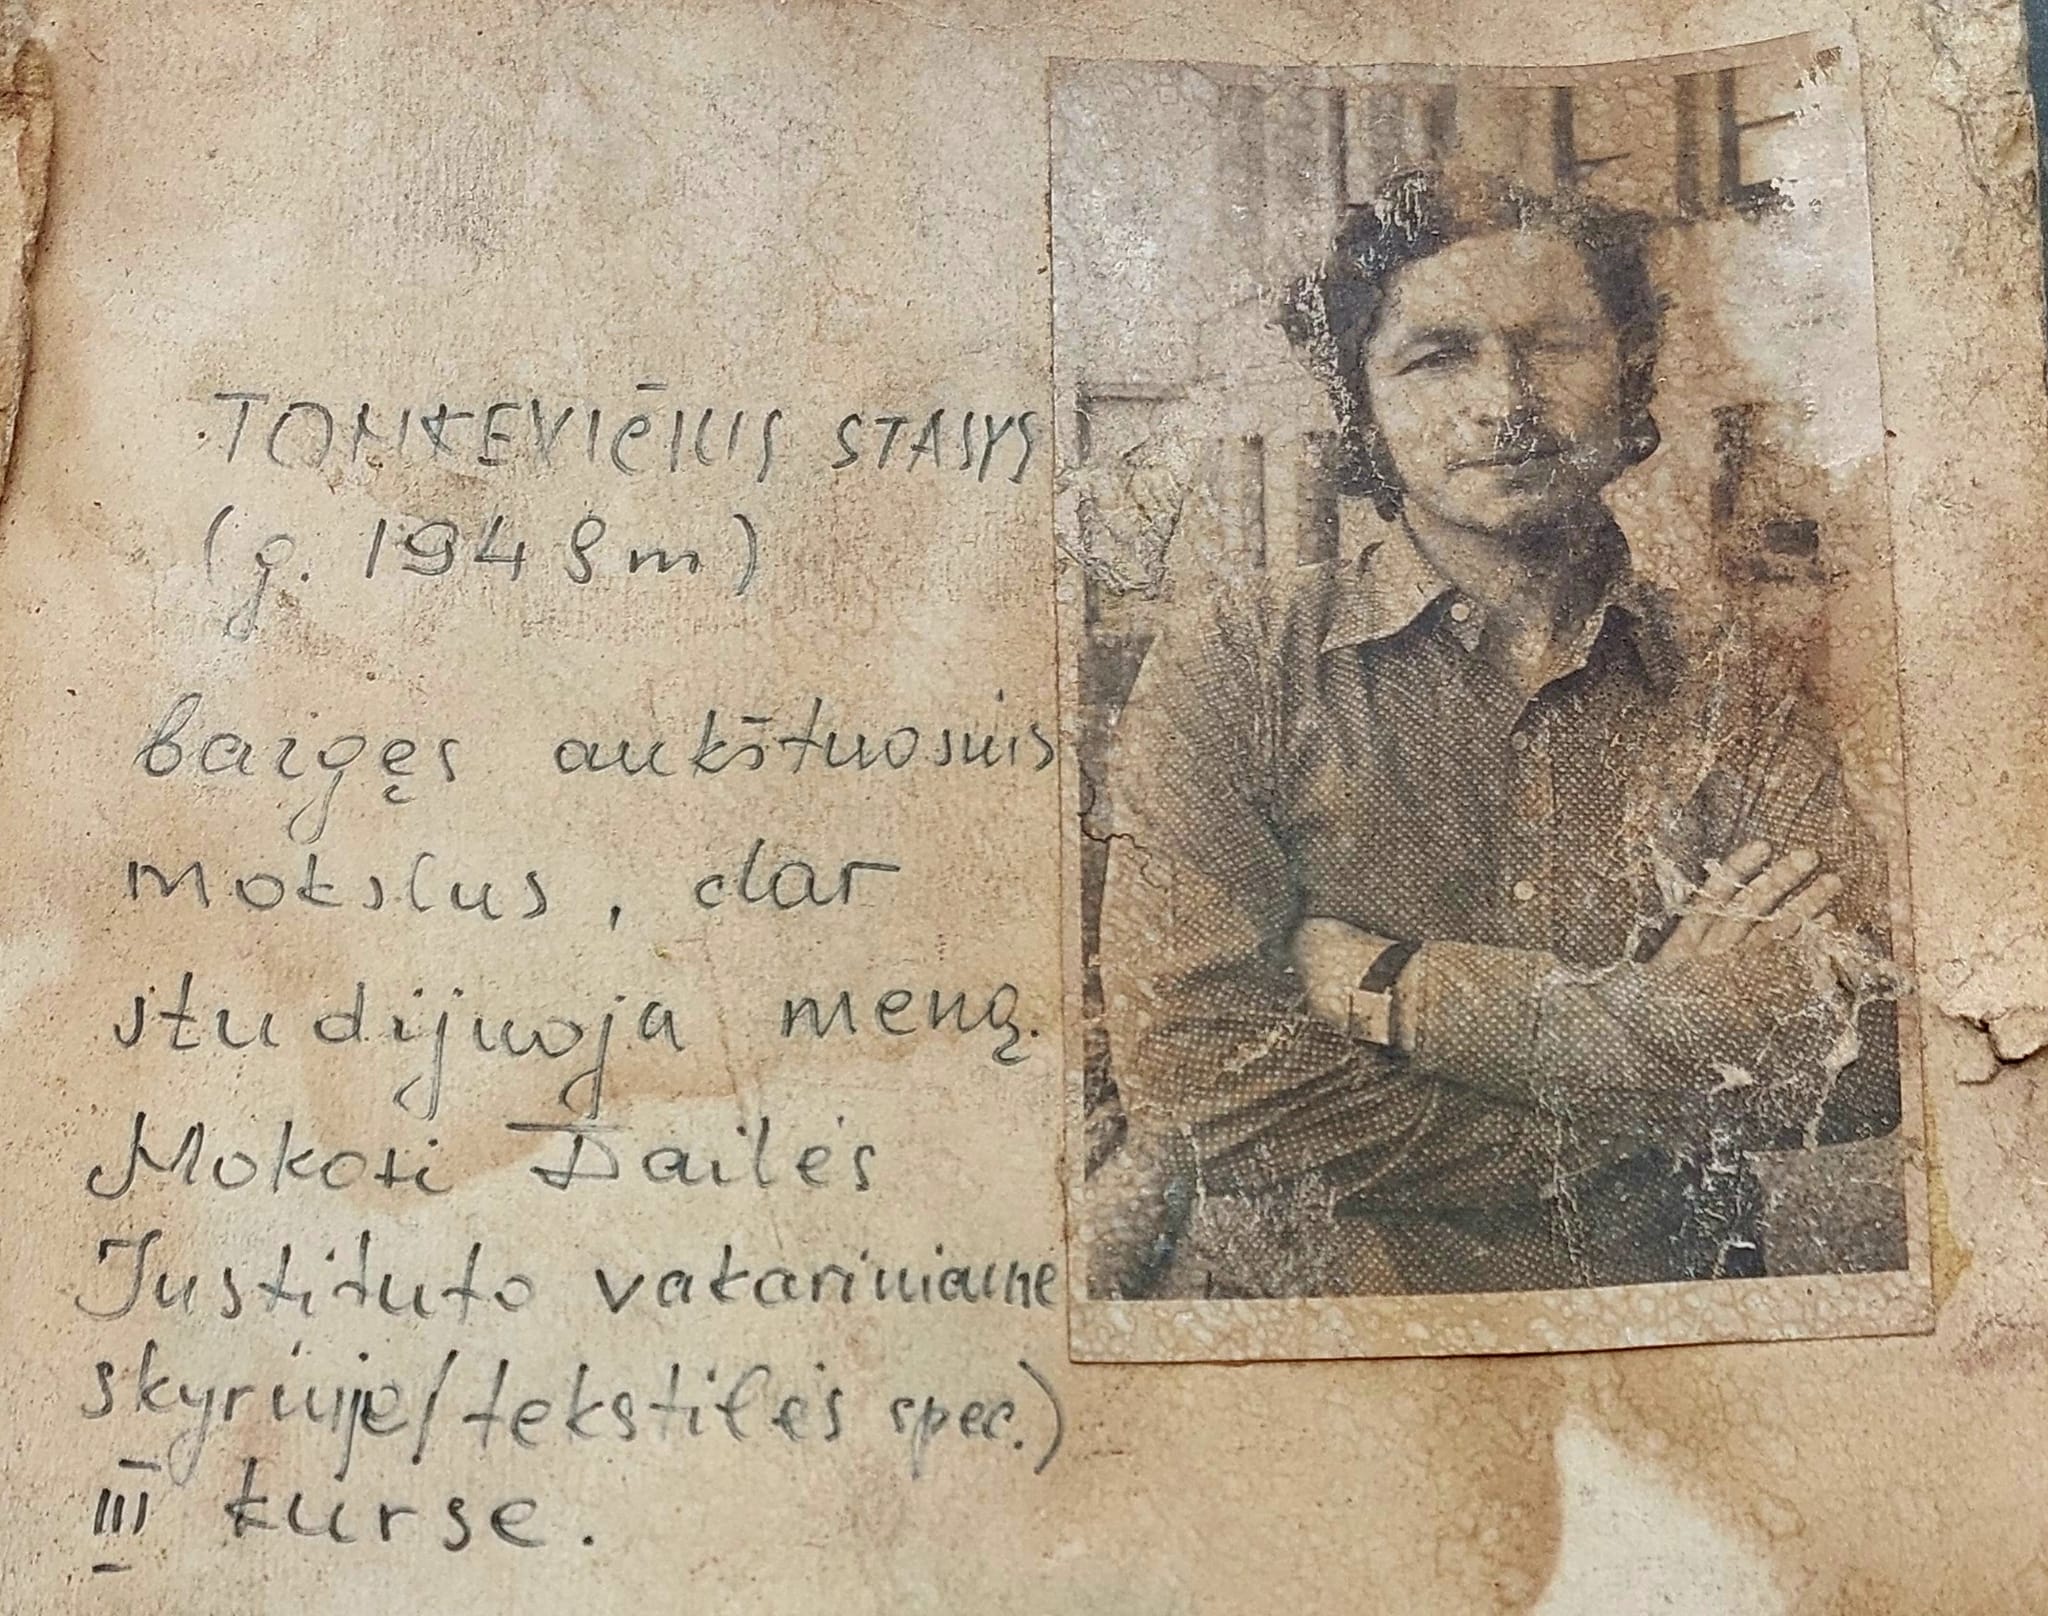 TONKEVIČIUS STASYS
(g. 1948 m)
baigęs aukštuosius
mokslus, dar
studijuoja meną.
Mokosi Dailės
Instituto vakariniame
skyriuje/tekstilės spec.)
III kurse.